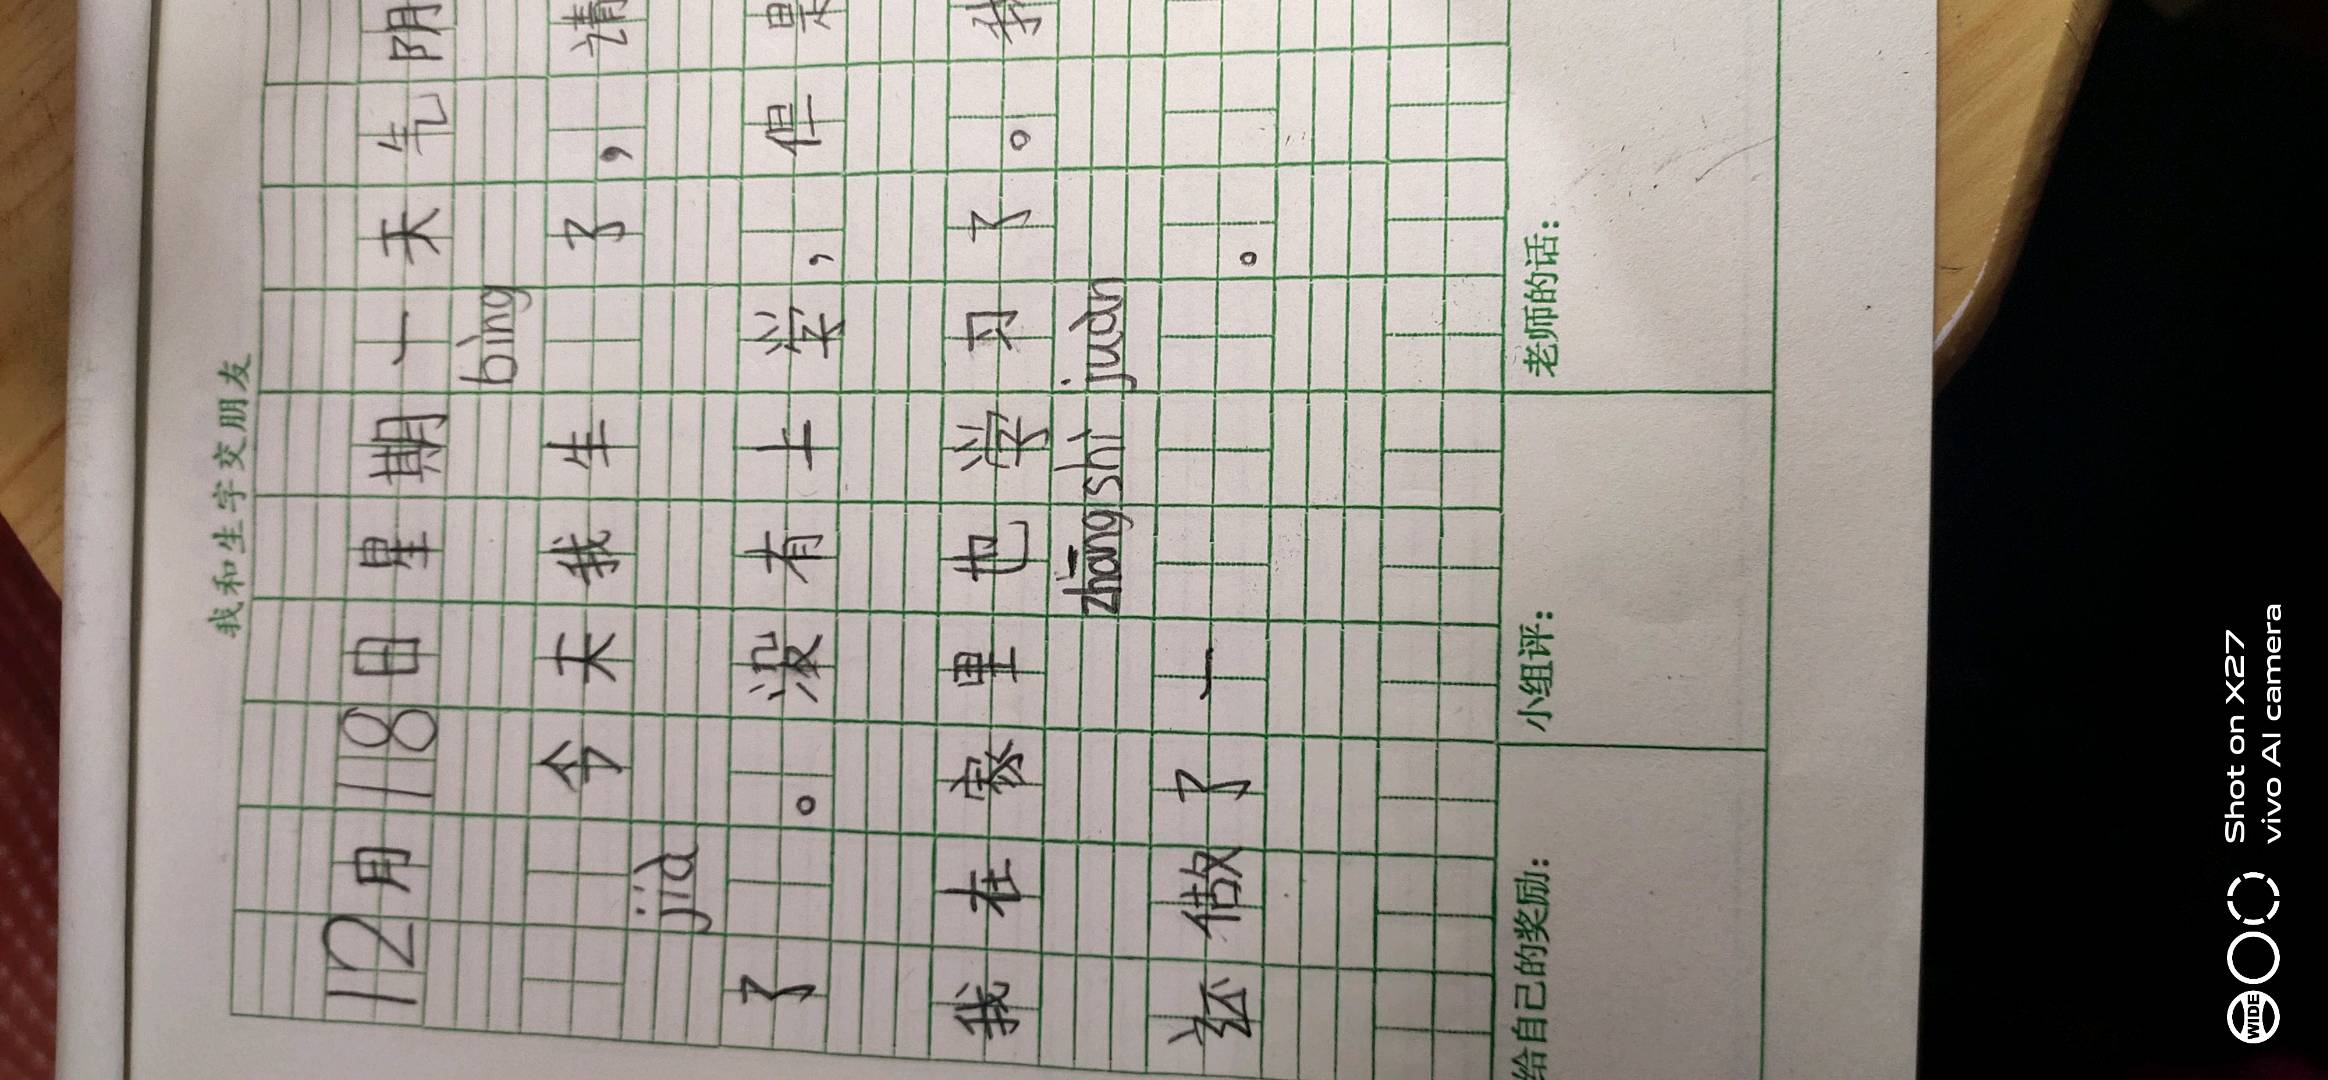 我和生字交朋友
12月18日星期一天气阴
bìng
今天我生 了，请
jià
了 。没有上学，但是
我在家里也学习了。我
zhāng shì juàn
还做了一 。
给自己的奖励：
小组评：
老师的话：
Shot on X27
vivo AI camera
WIDE